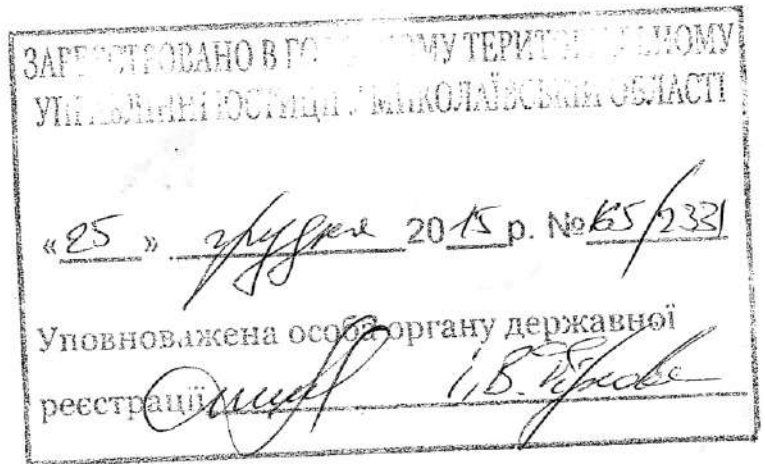 ЗАРЕЄСТРОВАНО В ГОЛОВНОМУ ТЕРИТОРІАЛЬНОМУ
УПРАВЛІННІ ЮСТИЦІЇ У МИКОЛАЇВСЬКІЙ ОБЛАСТІ
«25» грудня 2015 р. № 165/2331
Уповноважена особа органу державної
реєстрації І.В.